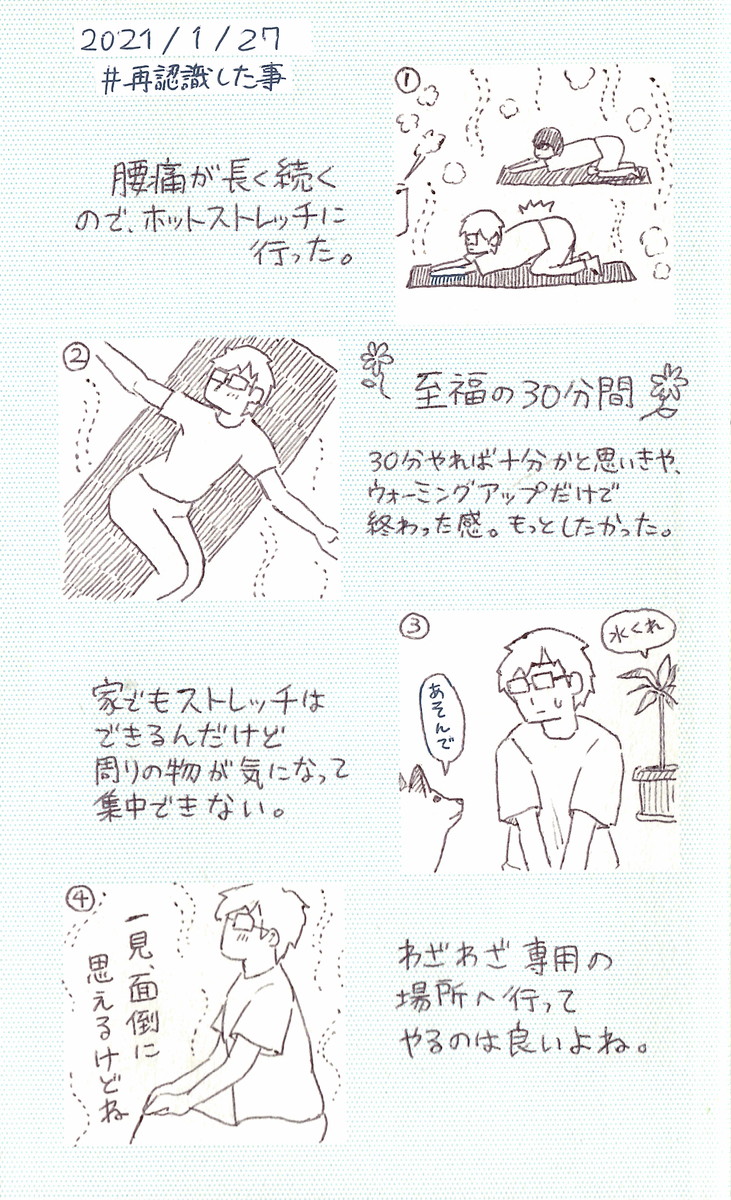 2021/1/27
#再認識した事
①
腰痛が長く続く
ので、ホットストレッチに
行った。
②
至福の30分間
30分やれば十分かと思いきや、
ウォーミングアップだけで
終わった感。もっとしたかった。
③
水くれ
あそんで
家でもストレッチは
できるんだけど
周りの物が気になって
集中できない。
④
一見、面倒に
思えるけどね
わざわざ専用の
場所へ行って
やるのは良いよね。